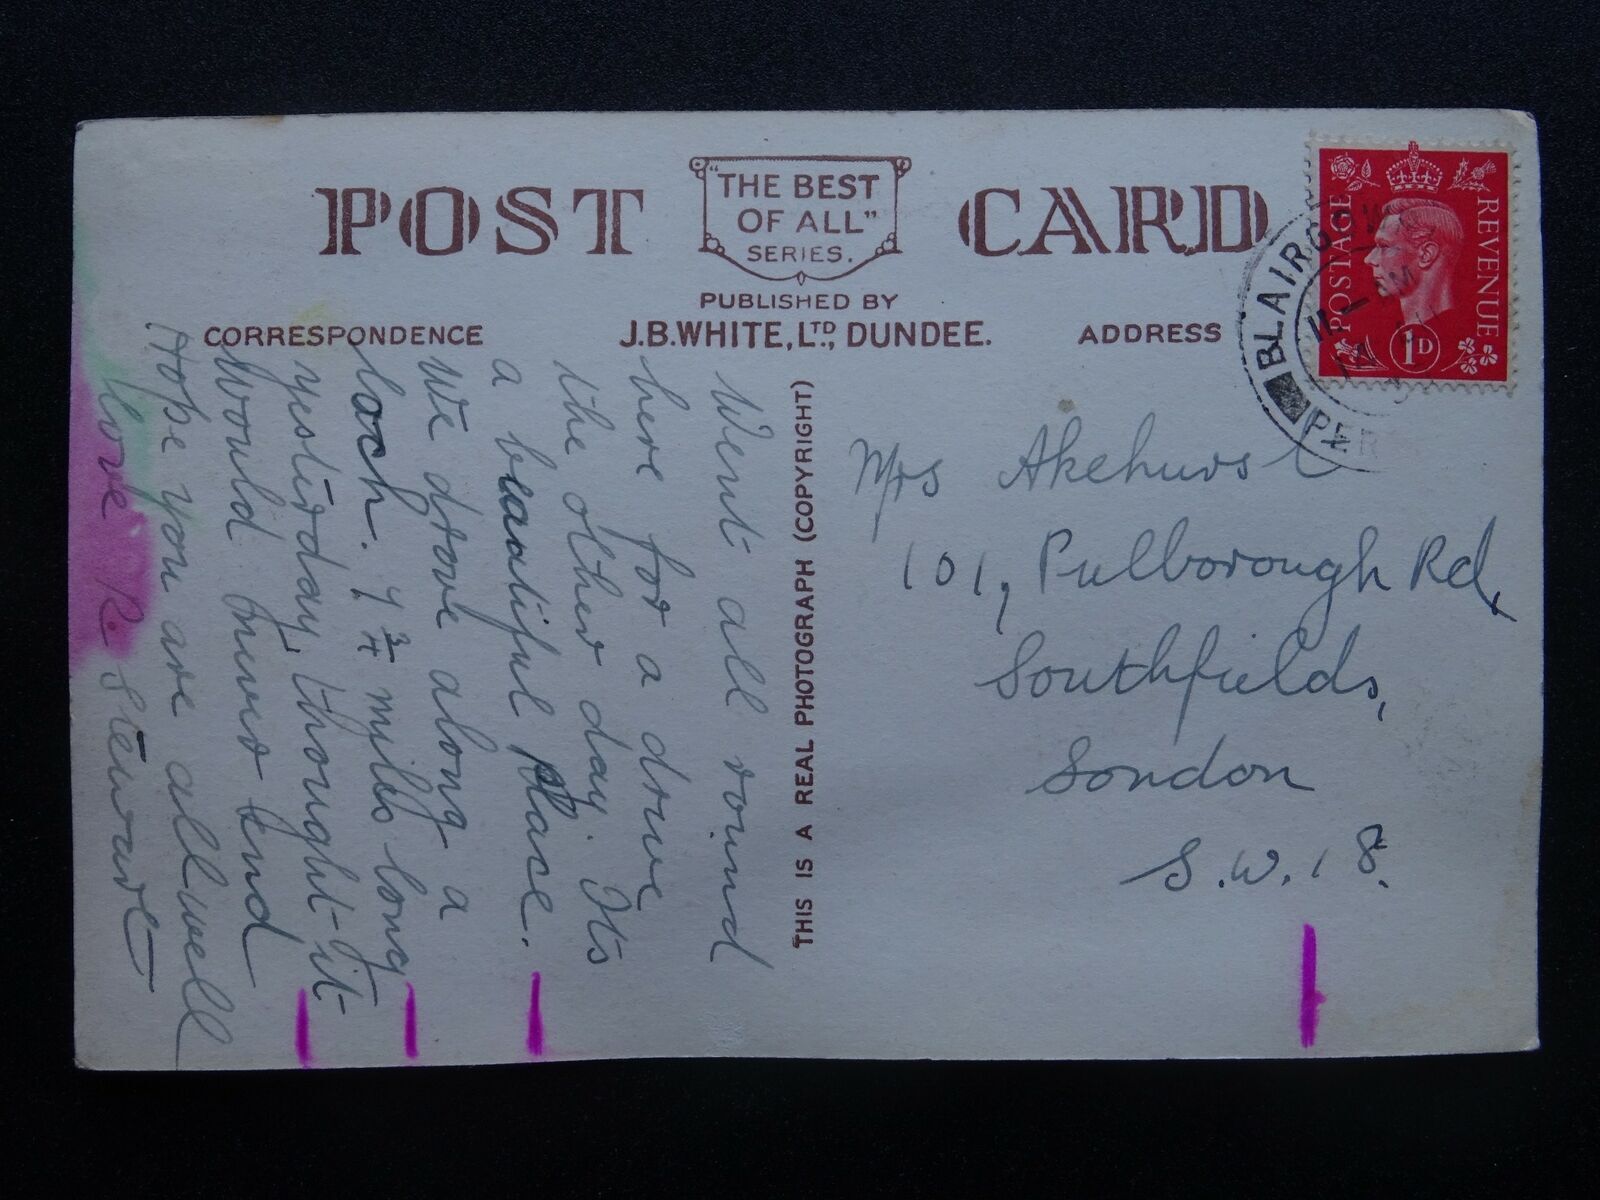 POST CARD
"THE BEST
OF ALL"
SERIES.
PUBLISHED BY
J.B. WHITE, LTD., DUNDEE.
CORRESPONDENCE
ADDRESS
Went all round
here for a drive
the other day. Its
a beautiful place.
We drove along a
loch. 9 3/4 miles long
yesterday, thought it
would never end
Hope you are all well
love R. Stewart
THIS IS A REAL PHOTOGRAPH (COPYRIGHT)
Mrs Akehurst
101, Pulborough Rd,
Southfields,
London
S.W.18.
POSTAGE
REVENUE
1D
BLAIRGOWRIE
11 — AM
PER